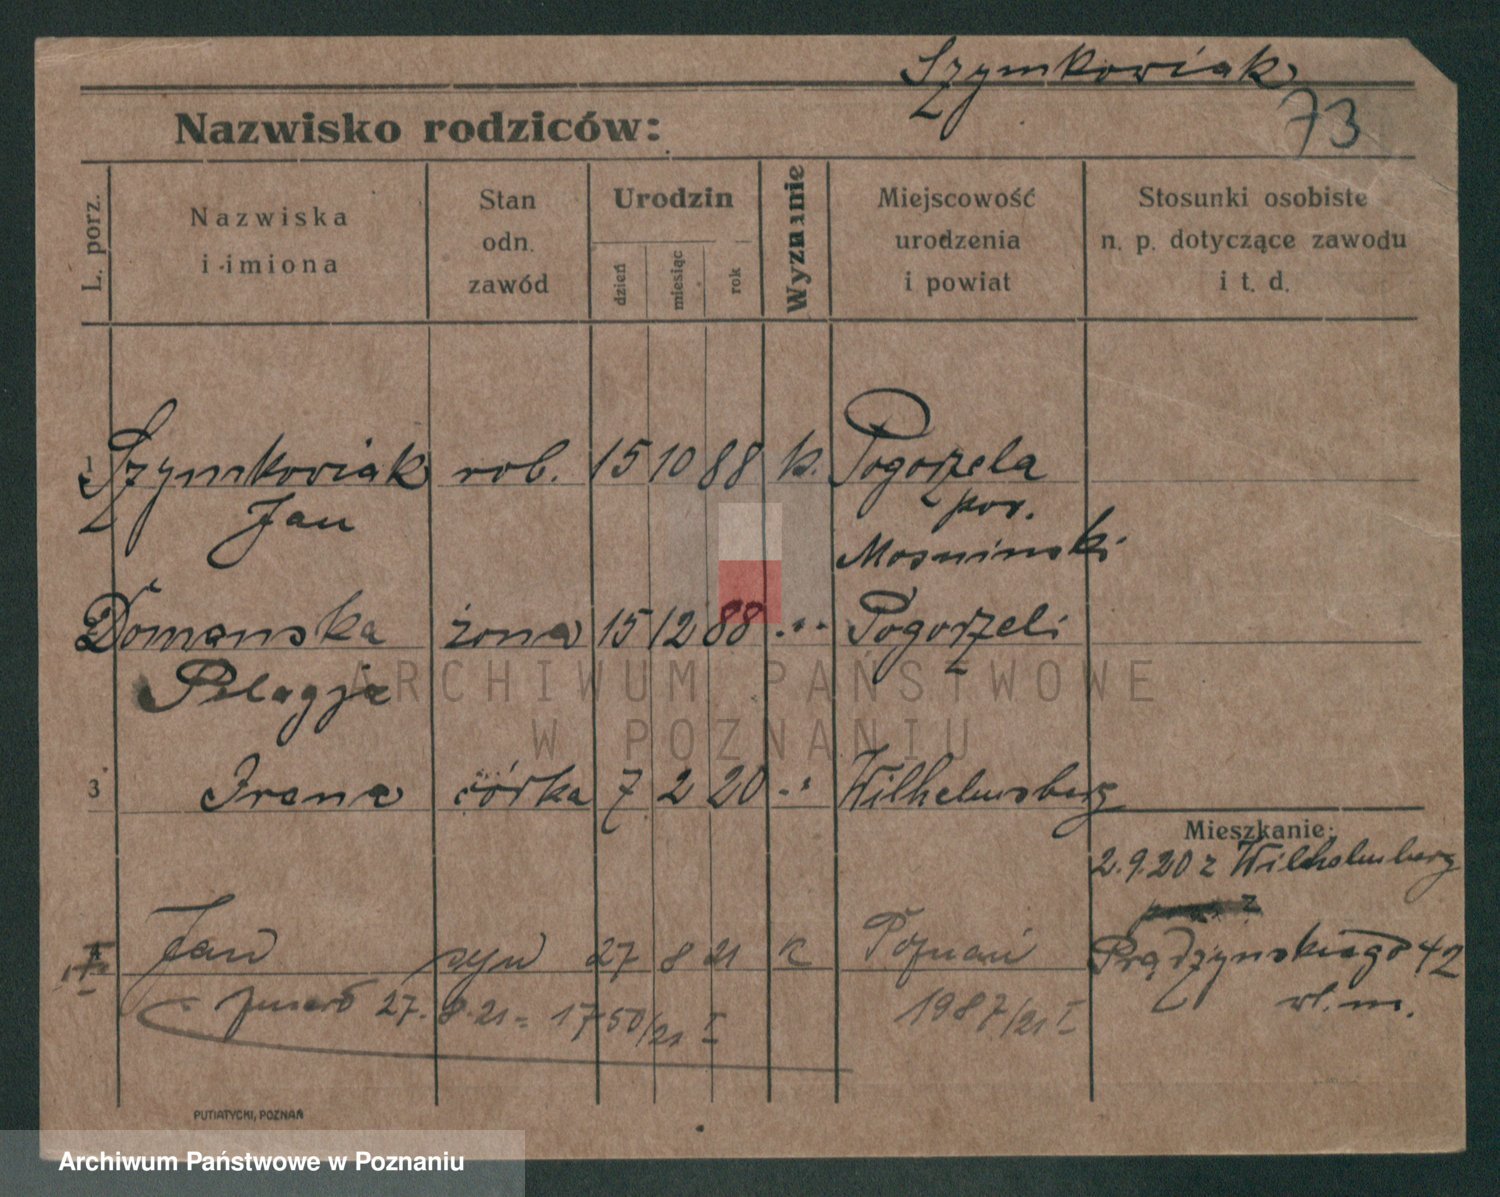 Szymkowiak
73
Nazwisko rodziców:
L. porz.
Nazwiska
i imiona
Stan
odn.
zawód
Urodzin
dzień
miesiąc
rok
Wyznanie
Miejscowość
urodzenia
i powiat
Stosunki osobiste
n. p. dotyczące zawodu
i t. d.
1 Szymkowiak rob. 15 10 88 k. Pogorzela
Jan pow.
Mosninski
Domanska żona 15 12 88 Pogorzeli
Pelagja
3 Irena córka 7 2 20 Wilhelmsberg
Mieszkanie:
2.9.20 z Wilhelmsberg
Jan syn 27 8 21 k Poznań
Prądzyńskiego 42
wł. m.
zmarł 27. 8. 21 = 1750/21 I
1987/21 I
PUTIATYCKI, POZNAŃ
ARCHIWUM PAŃSTWOWE
W POZNANIU
Archiwum Państwowe w Poznaniu